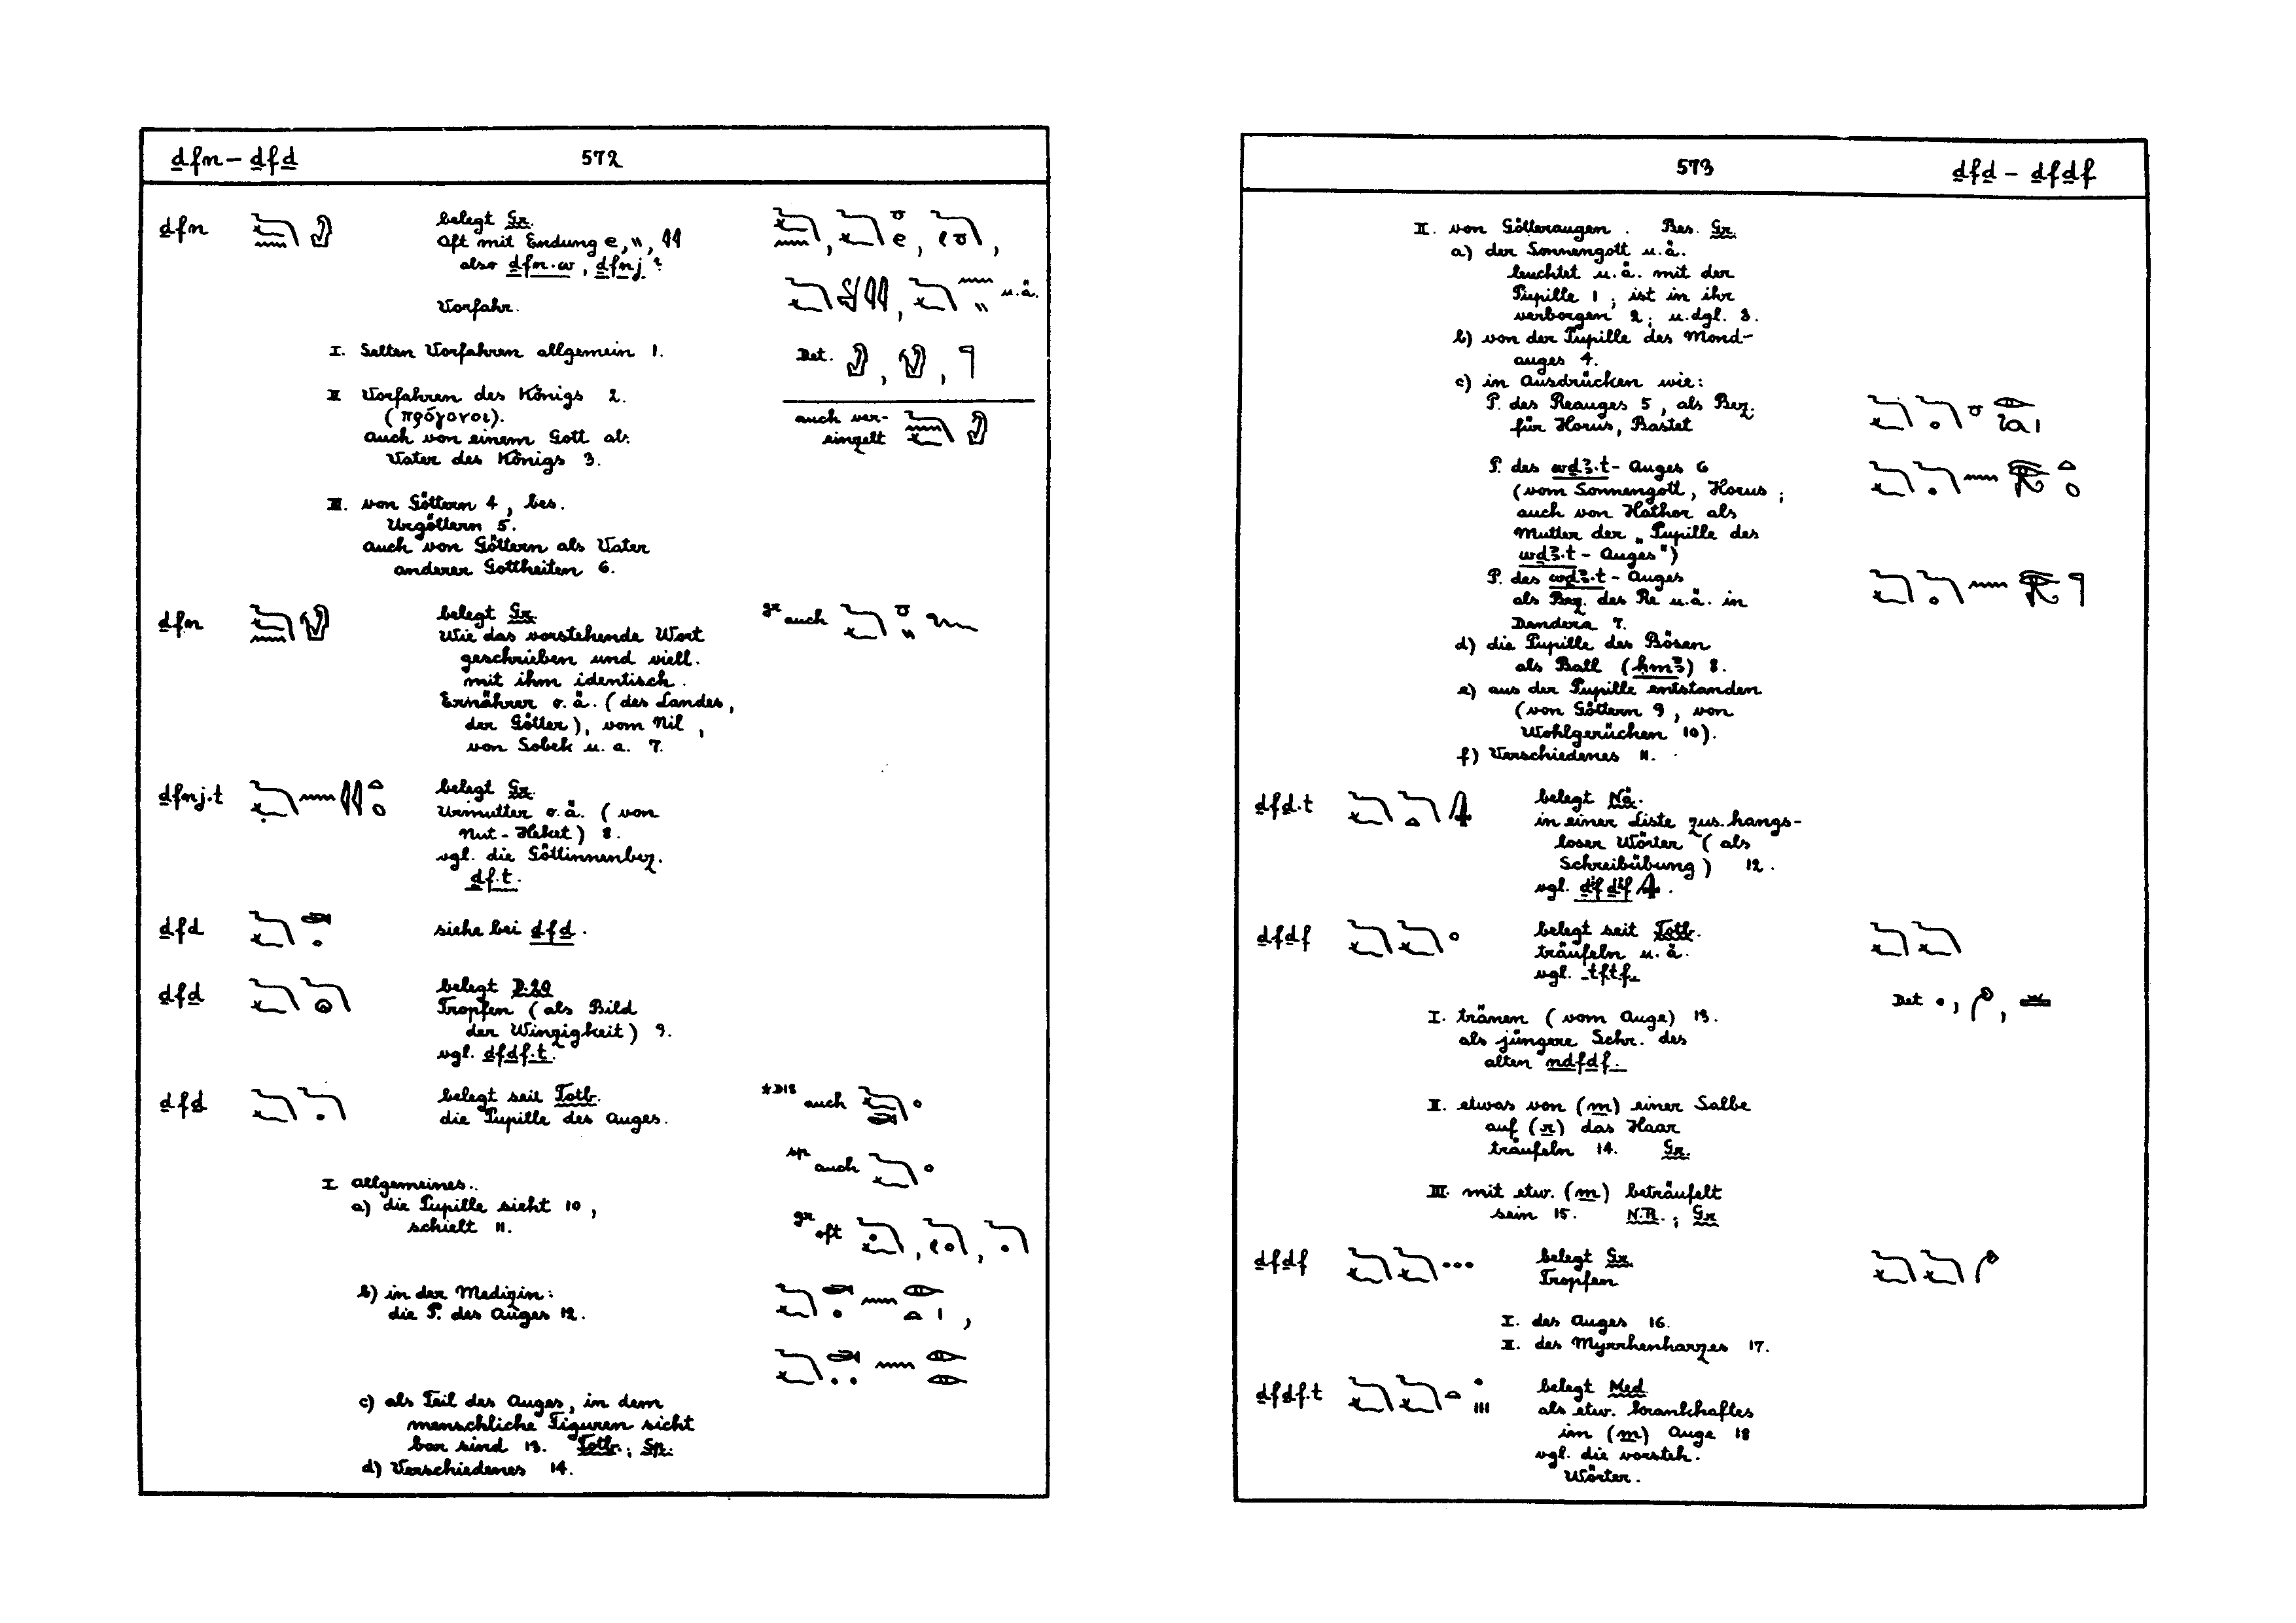 ḏfn – ḏfḏ
572
ḏfn
belegt Gr.
Oft mit Endung
also ḏfn.w, ḏfnj?
u.ä.
Vorfahr.
I. Selten Vorfahren allgemein 1.
Det.
II. Vorfahren des Königs 2.
(πρόγονοι).
auch von einem Gott als
Vater des Königs 3.
auch ver-
einzelt
III. von Göttern 4, bes.
Urgöttern 5.
auch von Göttern als Vater
anderer Gottheiten 6.
ḏfn
belegt Gr.
Wie das vorstehende Wort
geschrieben und viell.
mit ihm identisch.
Ernährer o.ä. (des Landes,
der Götter), vom Nil,
von Sobek u.a. 7.
gr auch
ḏfnj.t
belegt Gr.
Urmutter o.ä. (von
Nut-Heket) 8.
vgl. die Göttinnenbez.
ḏf.t.
ḏfd
siehe bei ḏfḏ.
ḏfḏ
belegt D.20
Tropfen (als Bild
der Winzigkeit) 9.
vgl. ḏfḏf.t.
ḏfḏ
belegt seit Totb.
die Pupille des Auges.
*D18 auch
sp auch
gr oft
I. Allgemeines.
a) die Pupille sieht 10,
schielt 11.
b) in der Medizin:
die P. des Auges 12.
c) als Teil des Auges, in dem
menschliche Figuren sicht
bar sind 13. Totb.; Sp.
d) Verschiedenes 14.
573
ḏfḏ – ḏfḏf
II. von Götteraugen. Bes. Gr.
a) der Sonnengott u.ä.
leuchtet u.ä. mit der
Pupille 1; ist in ihr
verborgen 2; u.dgl. 3.
b) von der Pupille des Mond-
auges 4.
c) in Ausdrücken wie:
P. des Reauges 5, als Bez.
für Horus, Bastet
P. des wḏꜣ.t-Auges 6
(vom Sonnengott, Horus;
auch von Hathor als
Mutter der „Pupille des
wḏꜣ.t-Auges")
P. des wḏꜣ.t-Auges
als Bez. des Re u.ä. in
Dendera 7.
d) die Pupille des Bösen
als Ball (hmꜣ) 8.
e) aus der Pupille entstanden
(von Göttern 9, von
Wohlgerüchen 10).
f) Verschiedenes 11.
ḏfḏ.t
belegt Nä.
in einer Liste zus.hangs-
loser Wörter (als
Schreibübung) 12.
vgl.
ḏfḏf
belegt seit Totb.
träufeln u.ä.
vgl. tftf.
Det
I. tränen (vom Auge) 13.
als jüngere Schr. des
alten nḏfḏf.
II. etwas von (m) einer Salbe
auf (r) das Haar
träufeln 14. Gr.
III. mit etw. (m) beträufelt
sein 15. N.R.; Gr
ḏfḏf
belegt Gr.
Tropfen
I. des Auges 16.
II. des Myrrhenharzes 17.
ḏfḏf.t
belegt Med.
als etw. krankhaftes
im (m) Auge 18
vgl. die vorsteh.
Wörter.